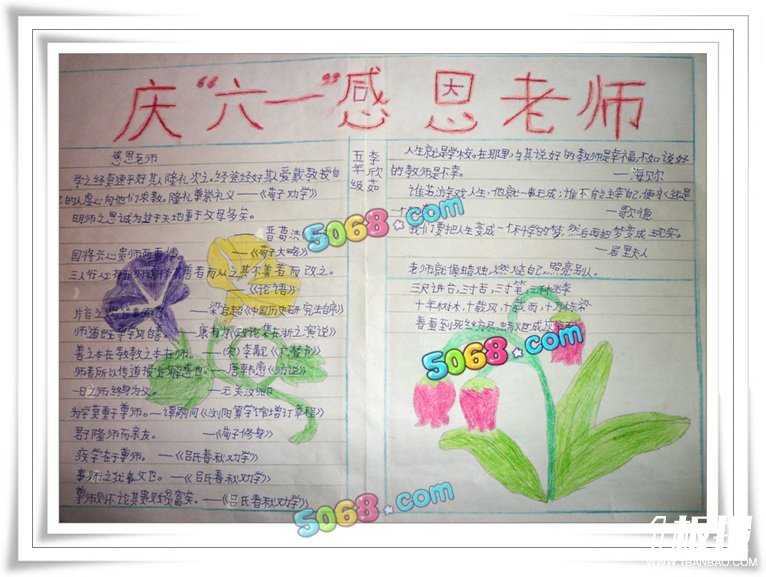 庆“六一”感恩老师
感恩老师
学之经莫速乎好其人隆礼次之。
的人虚心向他们求教。隆礼尊崇礼义——《荀子·劝学》
明师之恩诚为过于天地重于父母多矣。
晋葛洪
国将兴心贵师而重傅。——《荀子大略》
三人行必有我师焉择其善者而从之其不善者而改之。
——《论语》
——梁启超《中国历史研究法自序》
善之本在教教之本在师。——(宋)李觏《广潜书》
师者所以传道授业解惑也。——唐韩愈《师说》
一日之师终身为父
为学莫重于尊师。——谭嗣同《浏阳算学馆增订章程》
君子隆师而亲友。——《荀子修身》
疾学在于尊师。——《吕氏春秋劝学》
事师之犹事父也。——《吕氏春秋劝学》
尊师则不论其贵贱贫富矣。——《吕氏春秋劝学》
五年级
李欣茹
人生就是学校。在那里,与其说好的教师是幸福,不如说好
的教师是不幸。——海贝尔
谁若游戏人生,他就一事无成;谁不能主宰自己,便永远是
——歌德
我们要把人生变成一个科学的梦,然后再把梦变成现实。
——居里夫人
老师就像蜡烛,燃烧自己,照亮别人。
三尺讲台,三寸舌,三寸笔,三千桃李
十年树木,十载风,十载雨,十万栋梁
5068.com
5068.com
5068.com
WWW.1BANBAO.COM